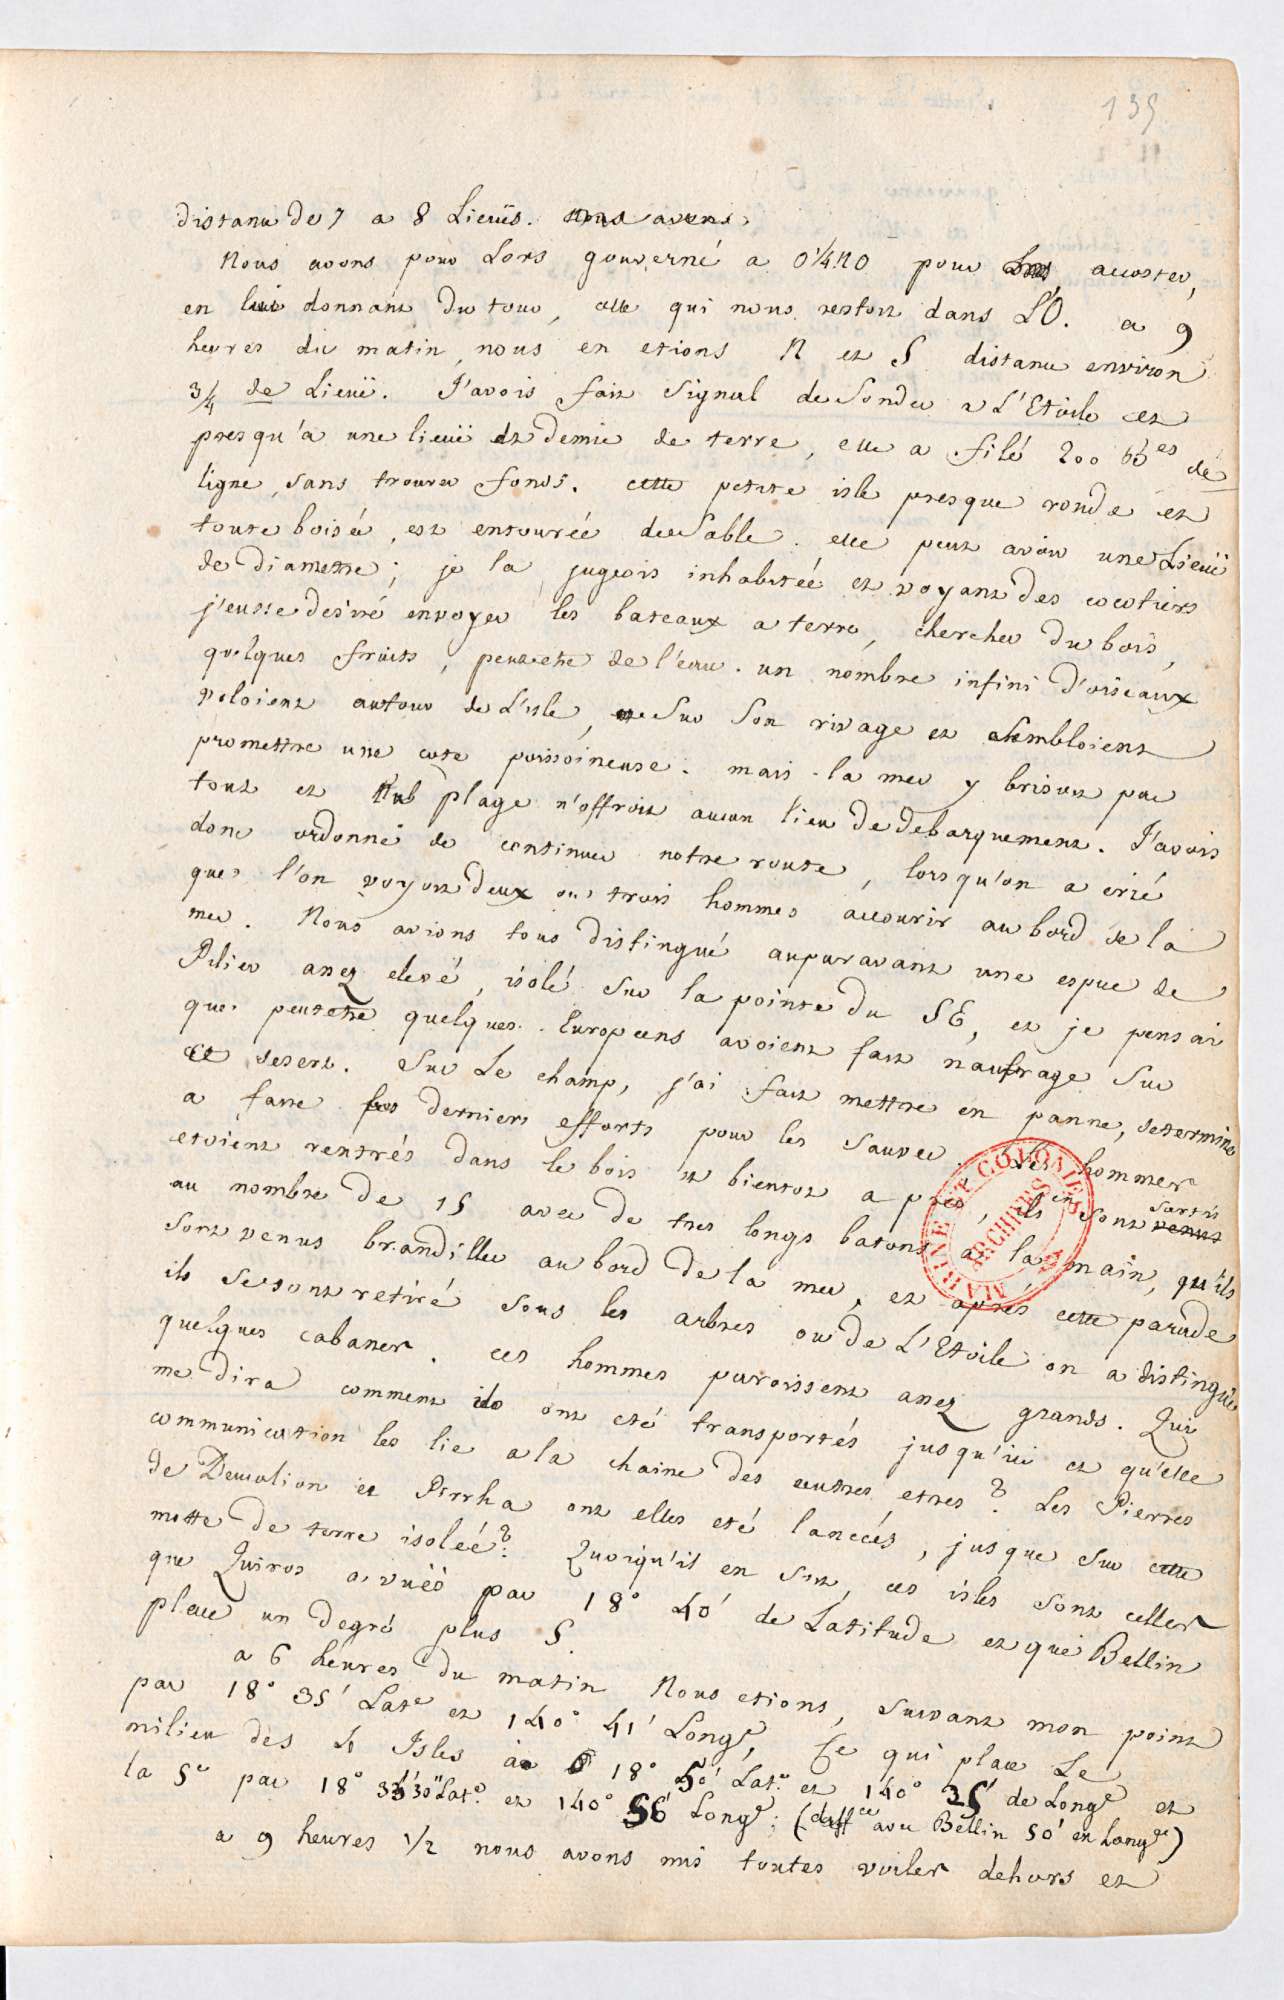 135
distance de 7 a 8 Lieuës. nous avons
Nous avons pour Lors gouverné a O¼NO pour accoster,
en lui donnant du tour, celle qui nous restoit dans L'O. a 9
heures du matin, nous en etions N et S distance environ
3/4 de Lieuë. J'avois fait signal de sonder a L'Etoile et
presqu'a une lieuë et demie de terre, elle a filé 200 bb.es de
ligne, sans trouver fonds. cette petite isle presque ronde et
toute boisée, est entourée de sable. elle peut avoir une Lieuë
de diametre; je la jugeois inhabitée et voyant des cocotiers
j'eusse desiré envoyer les bateaux a terre, chercher du bois,
quelques fruits, peutetre de l'eau. un nombre infini d'oiseaux
voloient autour de L'isle, et sur son rivage et sembloient
promettre une cote poissoineuse. mais la mer y brisoit par
tout et Nul plage n'offroit aucun lieu de debarquement. J'avois
donc ordonné de continuer notre route, lorsqu'on a crié
que l'on voyoit deux ou trois hommes accourir au bord de la
mer. Nous avions tous distingué auparavant une espece de
Pilier assez elevé, isolé sur la pointe du SE, et je pensai
que peutetre quelques Europeens avoient fait naufrage sur
ce desert. Sur Le champ, j'ai fait mettre en panne, determiné
a faire les derniers efforts pour les sauver. Les hommes
etoient rentrés dans le bois et bientot apres, ils en sont venus sortis
au nombre de 15 avec de tres longs batons a la main, qu'ils
sont venus brandiller au bord de la mer, et aprés cette parade
ils se sont retiré sous les arbres ou de L'Etoile on a distingué
quelques cabanes. ces hommes paroissent assez grands. Qui
me dira comment ils ont eté transportés jusqu'ici et qu'elle
communication les lie a la chaine des autres etres? Les Pierres
de Deucalion et Pirrha ont elles eté lancées, jusque sur cette
motte de terre isoleé? Quoiqu'il en soit, ces isles sont celles
que Quiros a vuës par 18° 40' de Latitude et que Bellin
place un degré plus S.
a 6 heures du matin Nous etions, suivant mon point
par 18° 35' Lat.e et 140° 41' Long.e, Ce qui place Le
milieu des 4 Isles a 18° 50' Lat.e et 140° 25' de Long.e et
la 5e par 18° 33' 30" Lat.e et 140° 56' Long.e; (diff.ce avec Bellin 50' en Long.de)
a 9 heures 1/2 nous avons mis toutes voiles dehors et
MARINE ET COLONIES
ARCHIVES